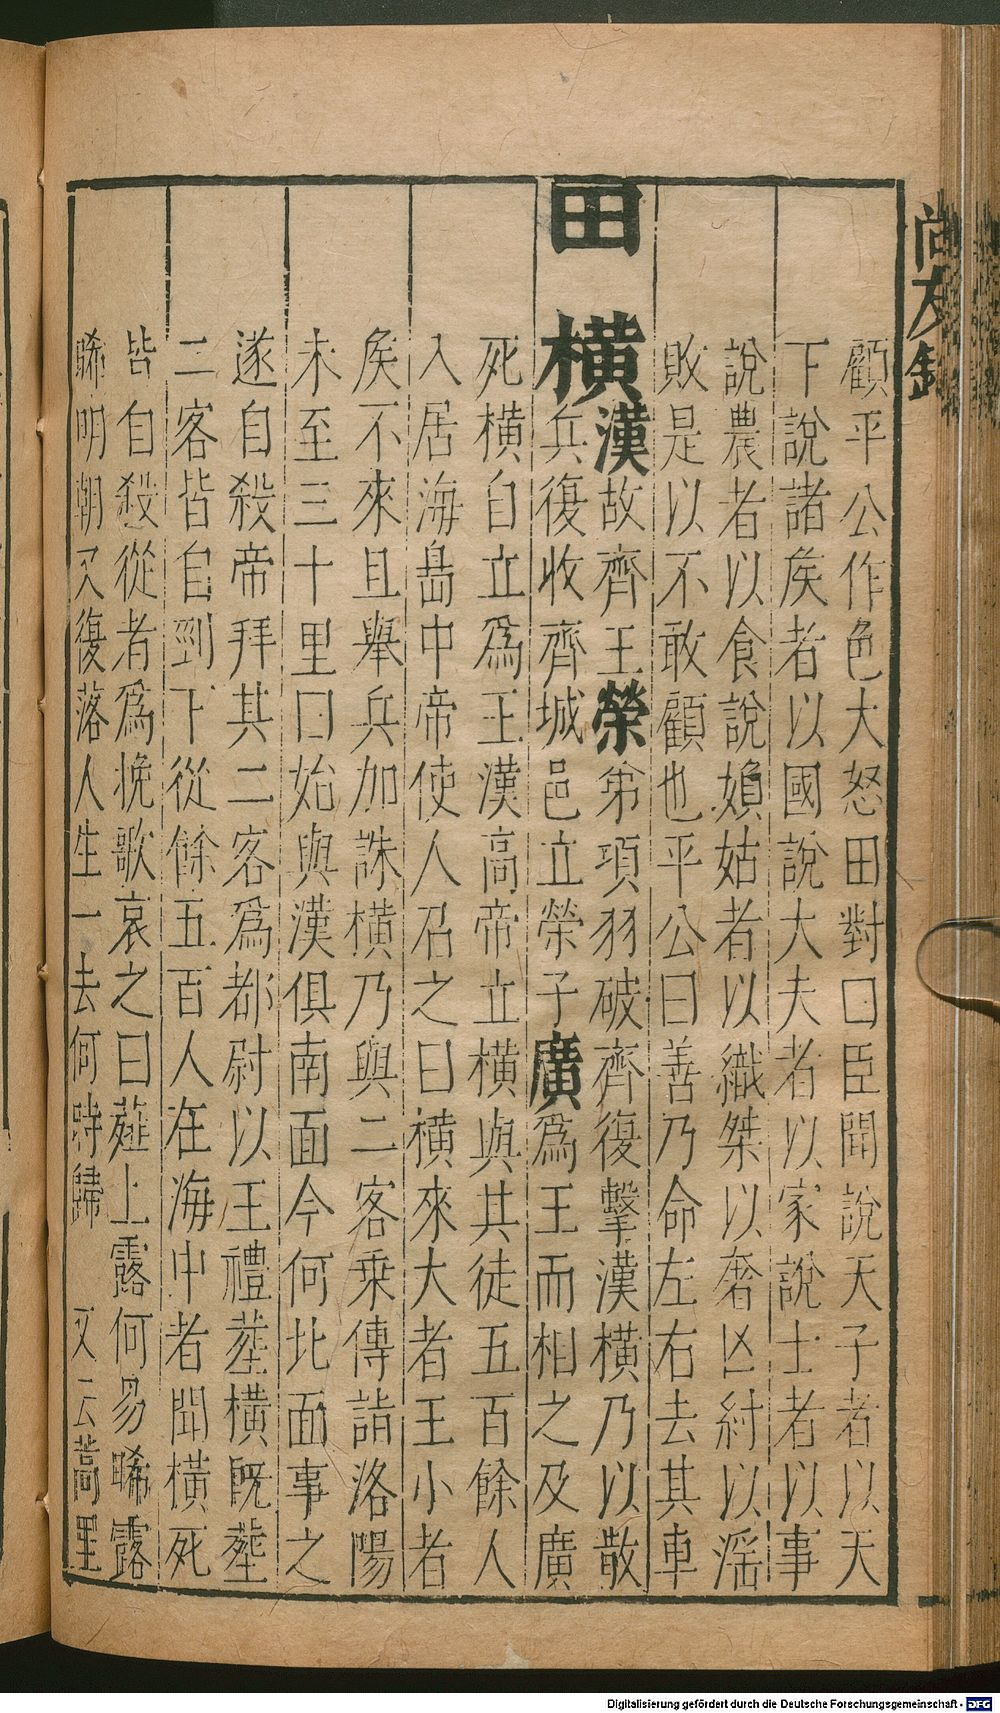 尚友錄
顧平公作色大怒田對曰臣聞說天子者以天
下說諸矦者以國說大夫者以家說士者以事
說農者以食說嬪姑者以織桀以奢凶紂以滛
敗是以不敢顧也平公曰善乃命左右去其車
田橫漢故齊王榮弟項羽破齊復擊漢橫乃以散
兵復收齊城邑立榮子廣爲王而相之及廣
死橫自立爲王漢高帝立橫與其徒五百餘人
入居海島中帝使人召之曰橫來大者王小者
矦不來且舉兵加誅橫乃與二客乗傳詣洛陽
未至三十里曰始與漢俱南面今何北面事之
遂自殺帝拜其二客爲都尉以王禮塟橫既塟
二客皆自剄下從餘五百人在海中者聞橫死
皆自殺從者爲挽歌哀之曰薤上露何易晞露
晞明朝又復落人生一去何時歸 又云蒿里
Digitalisierung gefördert durch die Deutsche Forschungsgemeinschaft - DFG